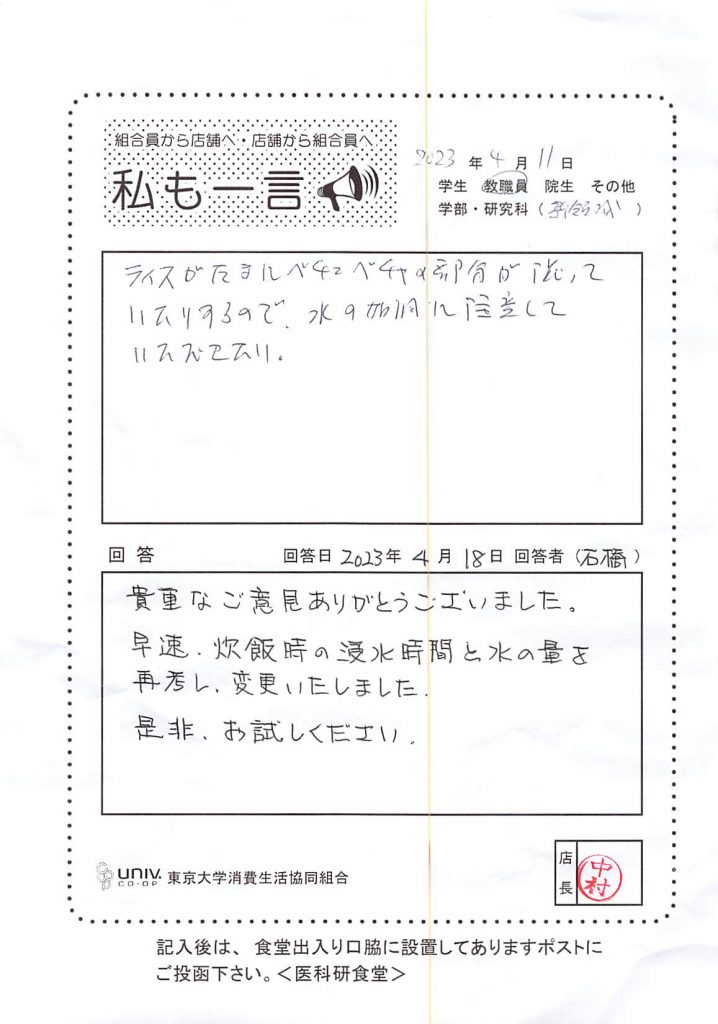 組合員から店舗へ・店舗から組合員へ
私も一言
2023 年 4 月 11 日
学生 教職員 院生 その他
学部・研究科 (新領域)
ライスがたまにベチャベチャの部分が混って
いたりするので、水の加減に注意して
いただきたい。
回答 回答日 2023年 4 月 18日 回答者 (石橋)
貴重なご意見ありがとうございました。
早速、炊飯時の浸水時間と水の量を
再考し、変更いたしました。
是非、お試しください。
店長 中村
UNIV. CO-OP 東京大学消費生活協同組合
記入後は、食堂出入り口脇に設置してありますポストに
ご投函下さい。<医科研食堂>